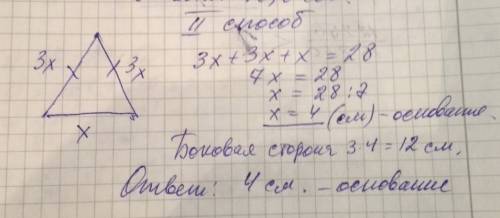 II способ
3x 3x
x
3x + 3x + x = 28
7x = 28
x = 28 : 7
x = 4 (см) - основание.
Боковая сторона 3·4 = 12 см.
Ответ: 4 см. - основание